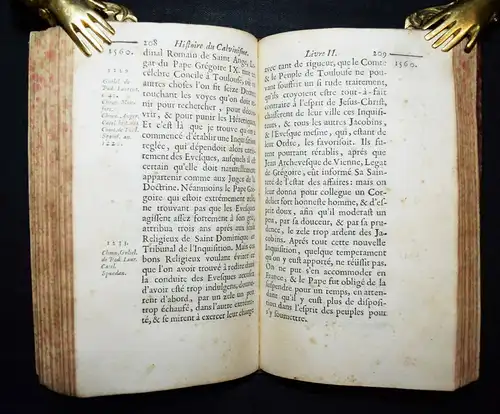 208 Histoire du Calvinisme.
1560.
dinal Romain de Saint Ange, Le-
gat du Pape Grégoire IX. tint un
célebre Concile à Toulouse, où
autres choses l'on fit seize Decrets
touchant les voyes qu'on doit
pour rechercher, pour
& pour punir les Hérétiques.
Et c'est là que je trouve qu'on a
commencé d'établir une Inquisition
reglée, qui dépendoit alors
des Evesques, ausquels il est
certain qu'elle doit naturellement
appartenir comme aux Juges de la
Doctrine. Néanmoins le Pape Gré-
goire qui estoit extrémement
ne trouvant pas que les Evesques
agissent assez fortement à son gré,
attribua trois ans aprés aux seuls
Religieux de Saint Dominique ce
Tribunal de l'Inquisition. Mais ces
bons Religieux voulant éviter ce
que l'on avoit trouvé à redire dans
la conduite des Evesques accusez
d'avoir esté trop indulgens, donne-
rent d'abord, par un zele un peu
trop échaufé, dans l'autre extrémi-
té, & se mirent à exercer leur charge
1233.
Chron. Guliel.
de Pod. Laur.
Catel.
Spondan.
Livre II. 209
1560.
avec tant de rigueur, que le Comte
& le Peuple de Toulouse ne pou-
vant souffrir un si rude traitement,
qu'ils croyoient estre tout-à-fait
contraire à l'esprit de Jesus-Christ,
chasserent de leur ville ces Inquisi-
teurs, & tous les autres Jacobins,
& l'Evesque mesme, qui, estant de
leur Ordre, les favorisoit. Ils y
furent pourtant rétablis, aprés que
Jean Archevesque de Vienne, Legat
de Grégoire, eût informé Sa Sain-
teté de l'estat des affaires; mais on
leur donna pour collegue un Cor-
delier fort honneste homme, & d'es-
prit doux, afin qu'il moderast un
peu, par sa douceur, & par sa pru-
dence, le zele trop ardent des Ja-
cobins. Aprés tout cette nouvelle
Inquisition, quelque temperament
qu'on y eust apporté, ne réüssit pas.
On ne put s'en accommoder en
France, & le Pape fut obligé de la
suspendre pour un temps, en atten-
dant qu'il y eust plus de disposi-
tion dans l'esprit des peuples pour
s'y soumettre.